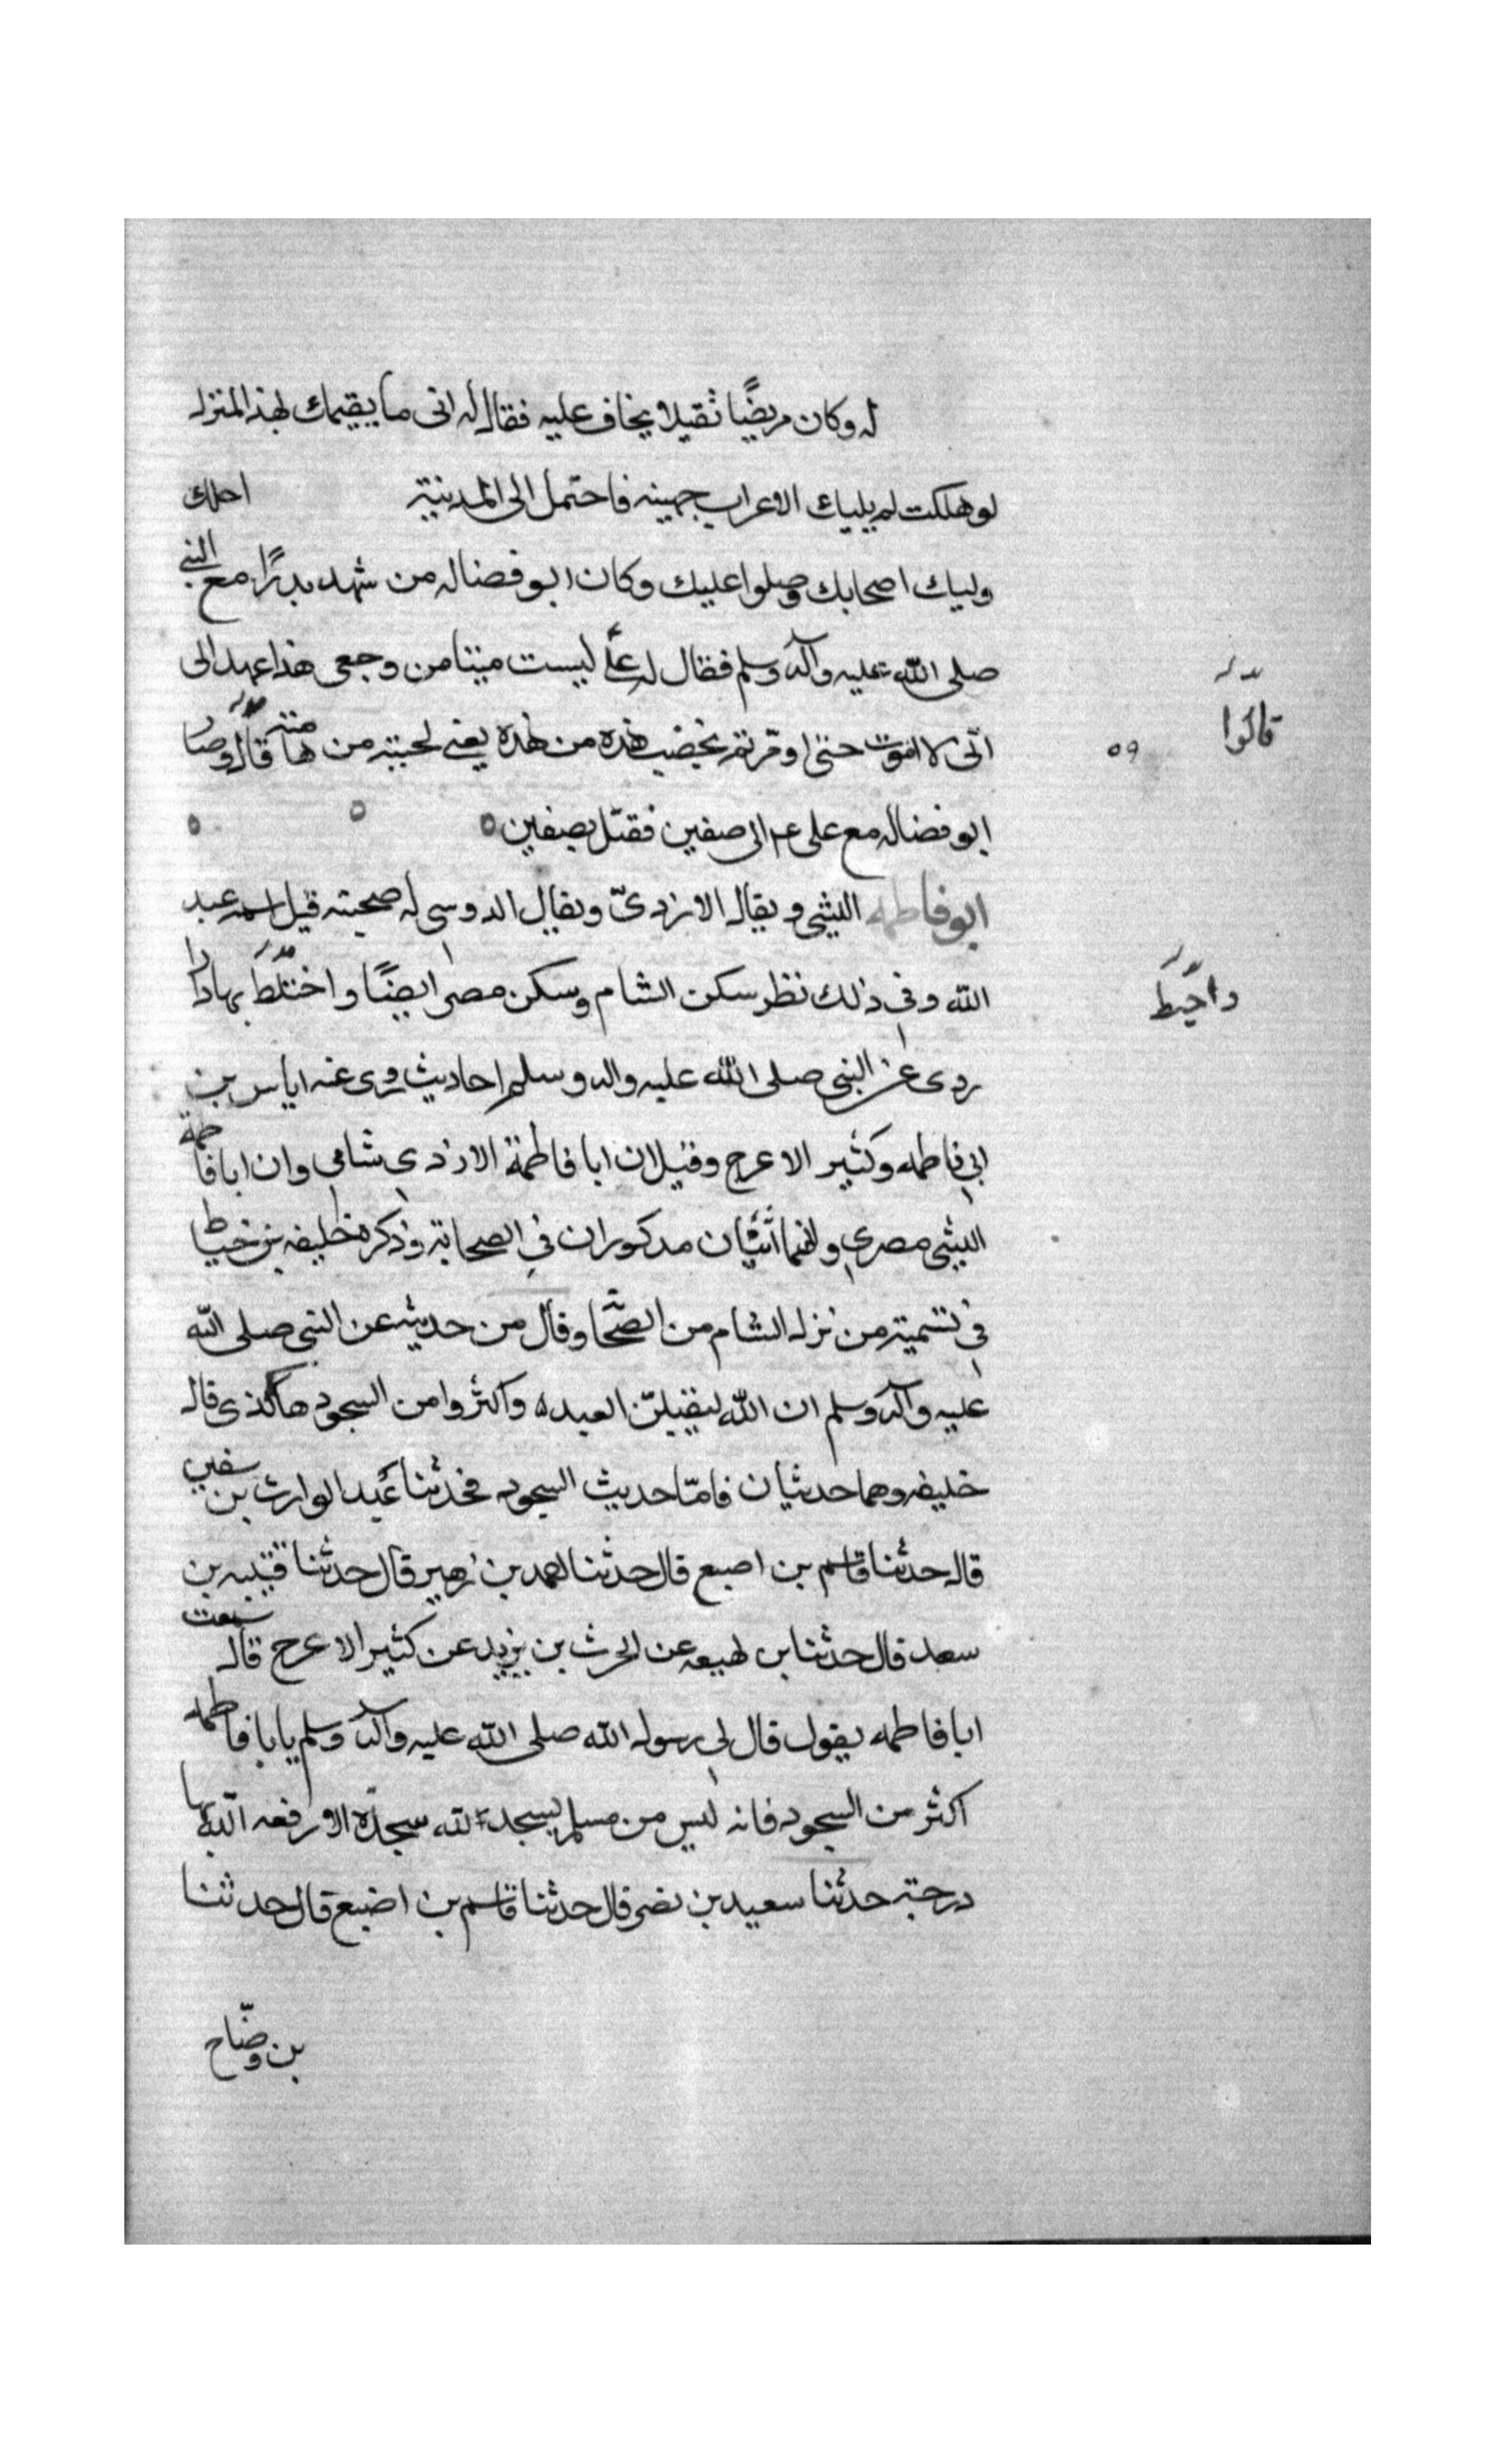 له وكان مريضًا ثقيلا يخاف عليه فقال له ابى ما يقيمك بهذا المنزله
لو هلكت لم يليك الا عراب جهينه فاحتمل الى المدينة احلك
وليك اصحابك وصلوا عليك وكان ابو فضاله من شهد بدرًا مع النبي
صلى الله عليه وآله وسلم فقال له علىّ ليست ميتا من وجعى هذا عهد الى
انى لا اموت حتى تخضب هذه من هذه يعنى لحيته من هامته قال وصار
قالوا
٥٩
ابو فضاله مع على عم الى صفين فقتل بصفين ٥ ٥ ٥
ابو فاطمه الليثى ويقال الازدىّ ويقال الدوسى له صحبته قيل اسمه عبد
الله وفى ذلك نظر سكن الشام وسكن مصر ايضًا واختلط بها دارا
واختط
روى عن النبى صلى الله عليه واله وسلم احاديث روى عنه اياس بن
ابى فاطمه وكثير الاعرج وقيل ان ابا فاطمة الازدى شامى وان ابا فاطمة
الليثى مصرى وانهما اثنان مذكوران فى الصحابة وذكره خليفه بن خياط
فى تسمية من نزله الشام من الصحا وقال من حديثه عن النبى صلى الله
عليه وآله وسلم ان الله العبده واكثروا من السجود هاكذى قاله
خليفه وهما حدثيان فامّا حديث السجود فحدثنا عبد الوارث بن سفين
قال حدثنا قاسم بن اصبع قال حدثنا احمد بن زهير قال حدثنا قتيبه بن
سعد قال حدثنا بن لهيعه عن الحرث بن يزيد عن كثير الاعرج قال سمعت
ابا فاطمه يقول قال لى رسول الله صلى الله عليه وآله وسلم يابا فاطمه
اكثر من السجود فانه ليس من مسلم يسجد لله سجدة الا رفعه الله بها
درجته حدثنا سعيد بن نصر قال حدثنا قاسم بن اصبع قال حدثنا
بن وضّاح